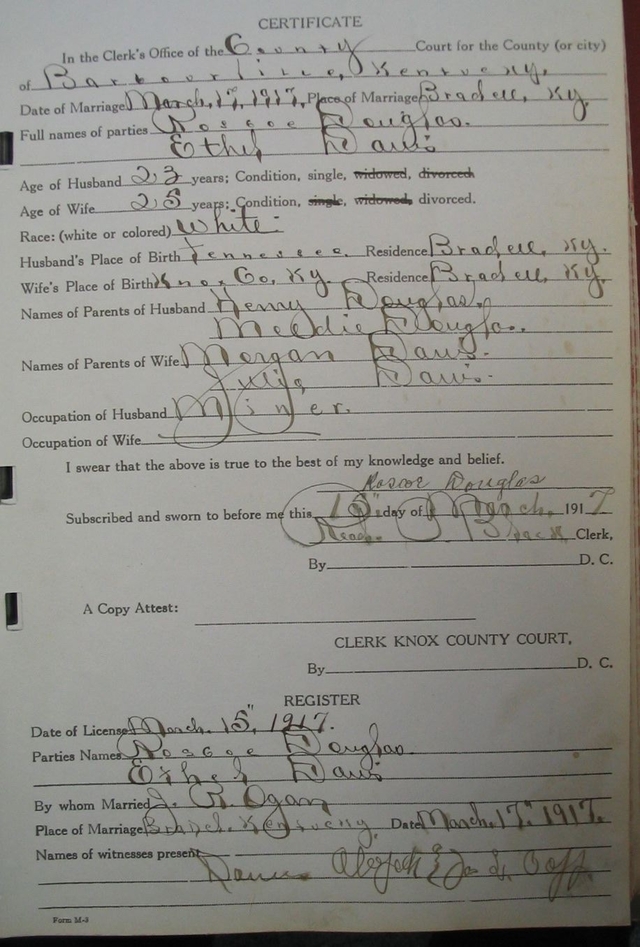 CERTIFICATE
In the Clerk's Office of the County Court for the County (or city)
of Barbourville, Kentucky.
Date of Marriage March, 17, 1917, Place of Marriage Bradell, Ky.
Full names of parties Roscoe Douglas.
Ethel Davis
Age of Husband 23 years; Condition, single, widowed, divorced
Age of Wife 25 years; Condition, single, widowed, divorced.
Race: (white or colored) White
Husband's Place of Birth Tennessee. Residence Bradell, Ky.
Wife's Place of Birth Knox, Co, Ky. Residence Bradell, Ky.
Names of Parents of Husband Henry Douglas.
Douglas.
Names of Parents of Wife Morgan Davis.
Julia Davis.
Occupation of Husband Miner.
Occupation of Wife
I swear that the above is true to the best of my knowledge and belief.
Roscoe Douglas
Subscribed and sworn to before me this 15" day of March. 1917
Read. Black Clerk,
By D. C.
A Copy Attest:
CLERK KNOX COUNTY COURT,
By D. C.
REGISTER
Date of License March. 15", 1917.
Parties Names Roscoe Douglas
Ethel Davis
By whom Married R. Ogan
Place of Marriage Kentucky, Date March, 17" 1917.
Names of witnesses present
Form M-3